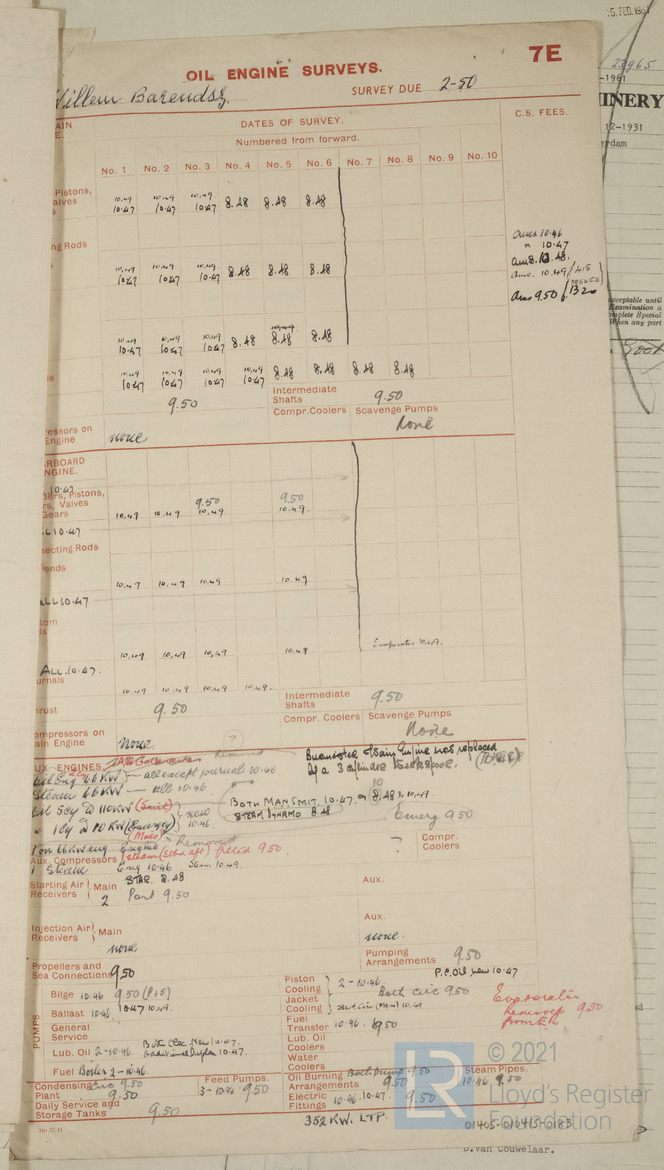 5. FEB. 19
23965
-1961
7E
OIL ENGINE SURVEYS.
Willem Barendsz.
SURVEY DUE 2-50
INERY
AIN
E.
DATES OF SURVEY.
C.S. FEES.
12-1931
Numbered from forward.
rdam
No. 1 No. 2 No. 3 No. 4 No. 5 No. 6 No. 7 No. 8 No. 9 No. 10
Pistons,
alves
s
10.49 10.49 10.49
10.47 10.47 10.47 8.48 8.48 8.48
Ams 10.46
" 10.47
Ams. 8.48.
Ams. 10.49
Ams 9.50
ng Rods
10.49 10.49 10.49
10.47 10.47 10.47 8.48 8.48 8.48
cceptable until
Examination a
mplete Special
When any part
10.49 10.49 10.49 10.49
10.47 10.47 10.47 8.48 8.48 8.48
s
10.49 10.49 10.49 10.49
10.47 10.47 10.47 10.47 8.48 8.48 8.48 8.48
9.50
Intermediate
Shafts
9.50
Compr. Coolers
Scavenge Pumps
None
ressors on
Engine
none
RBOARD
NGINE.
10.47
ers, Pistons,
rs, Valves
Gears
9.50 9.50
10.49 10.49 10.49 10.49.
LL 10.47
ecting Rods
ends
10.49 10.49 10.49 10.49
ALL 10.47
tom
ds
10.49 10.49 10.49 10.49
Evaporator 10.49.
ALL. 10.47.
urnals
10.49 10.49 10.49 10.49.
rust
9.50
Intermediate
Shafts
9.50
Compr. Coolers
Scavenge Pumps
None
ompressors on
ain Engine
None
?
UX. ENGINES.
Removed
66 KW - all except journal 10.46
Steam 66 KW - all 10.46
Oil 5cy D 110 KW (Smit)
" 1cy D 10 KW (Emergcy)
new
10.46
BOTH MAN SMIT. 10.47. 8.48 & 10.49.
STEAM DYNAMO 8.48
Emerg 9.50
Removed
Aux. Compressors
steam (Stbd aft) fitted 9.50
1 Steam Eng 10.46 Steam 10.49.
?
Compr.
Coolers
Starting Air
Receivers
Main
STAR. 8.48
2 Port 9.50
Aux.
Injection Air
Receivers
Main
none
Aux.
none.
Propellers and
Sea Connections
9.50
Pumping
Arrangements
9.50
P.C. Oil new 10.47
PUMPS
Bilge 10.46 9.50 (P&S)
Ballast 10.46 10.47 10.49.
General
Service
Lub. Oil 2-10.46 Both Elec New 10.47.
Additional Duplex 10.47.
Fuel Boiler 2-10.46
Piston
Cooling
2-10.46
Jacket
Cooling
Both circ 9.50
10.49
Fuel
Transfer
10.46. 9.50
Lub. Oil
Coolers
Water
Coolers
Evaporator
removed 9.50
Condensing
Plant
Circ 9.50
9.50
Feed Pumps.
3-10.46 9.50
Oil Burning
Arrangements
Both pump 9.50
9.50
Steam Pipes.
10.46. 9.50
Daily Service and
Storage Tanks
9.50
Electric
Fittings
10.46 10.47. 9.50
352 KW. LTP.
LR
© 2021
Lloyd's Register
Foundation
01405-010415-0183
D.van Couwelaar.